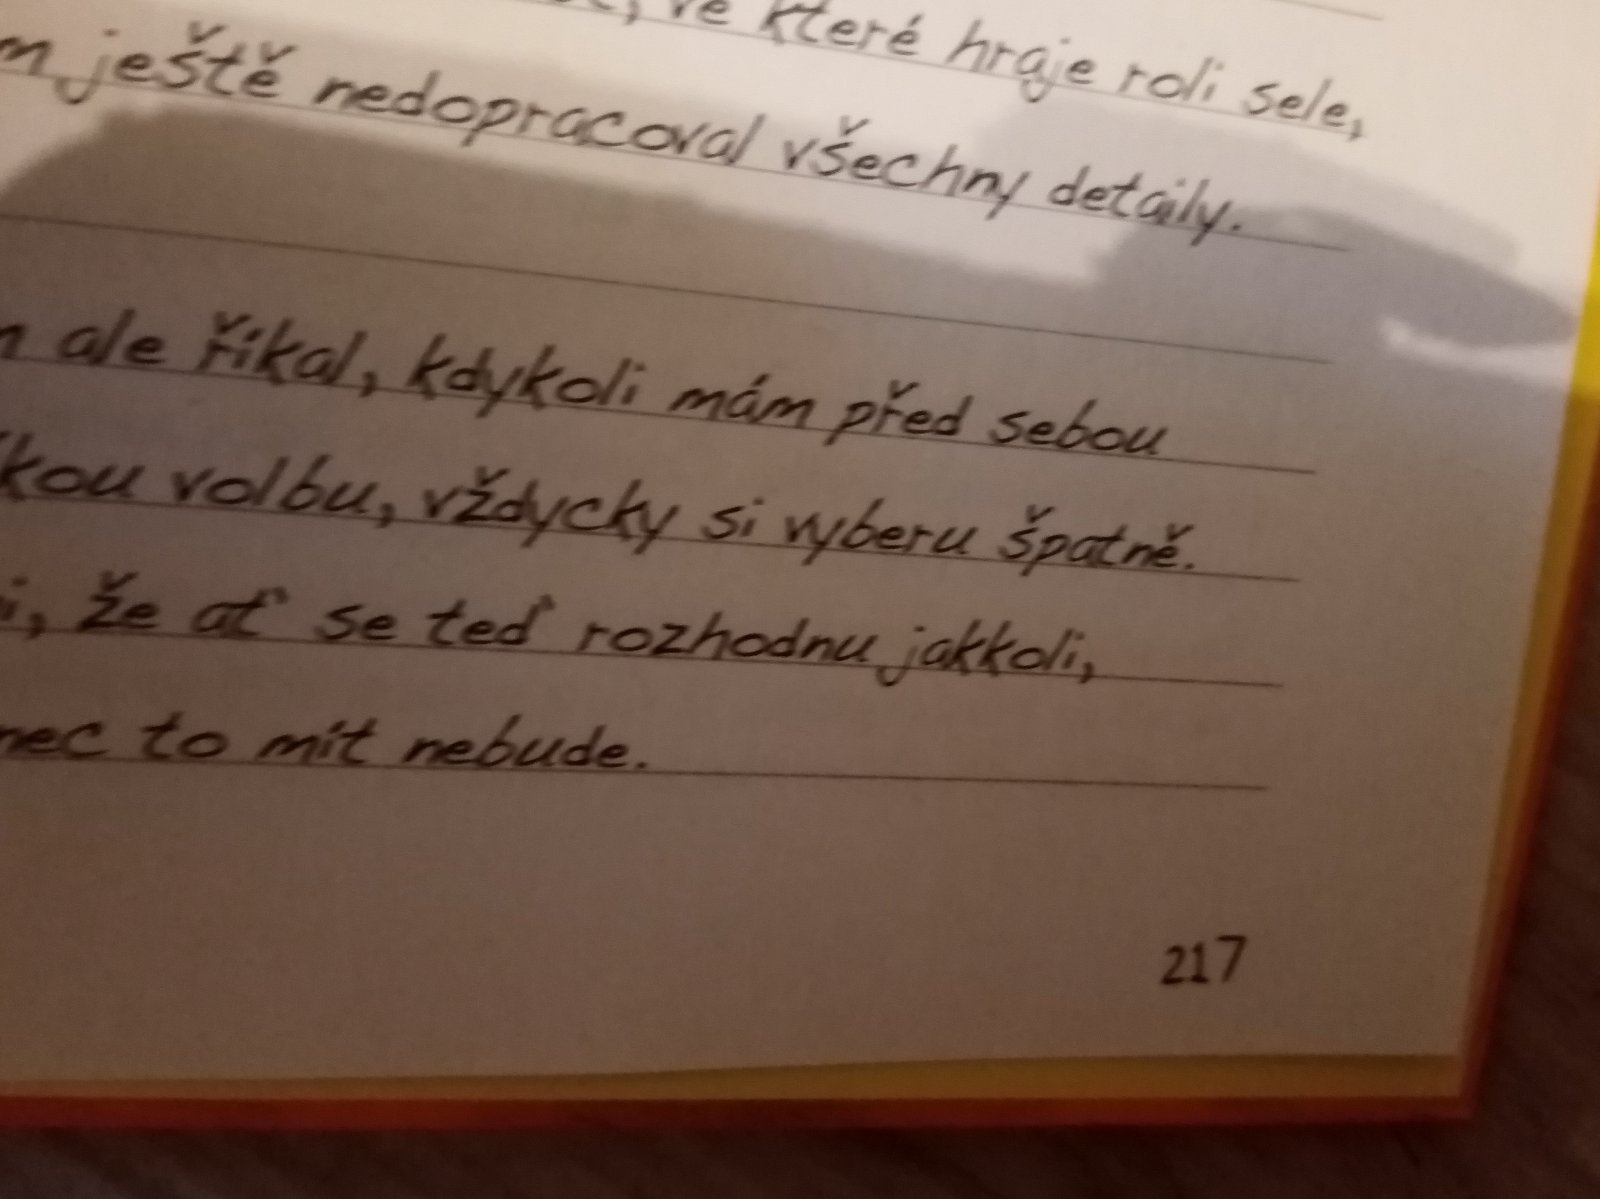 ve které hraje roli sele,
ještě nedopracoval všechny detaily.
ale říkal, kdykoli mám před sebou
volbu, vždycky si vyberu špatně.
že ať se teď rozhodnu jakkoli,
to mít nebude.
217